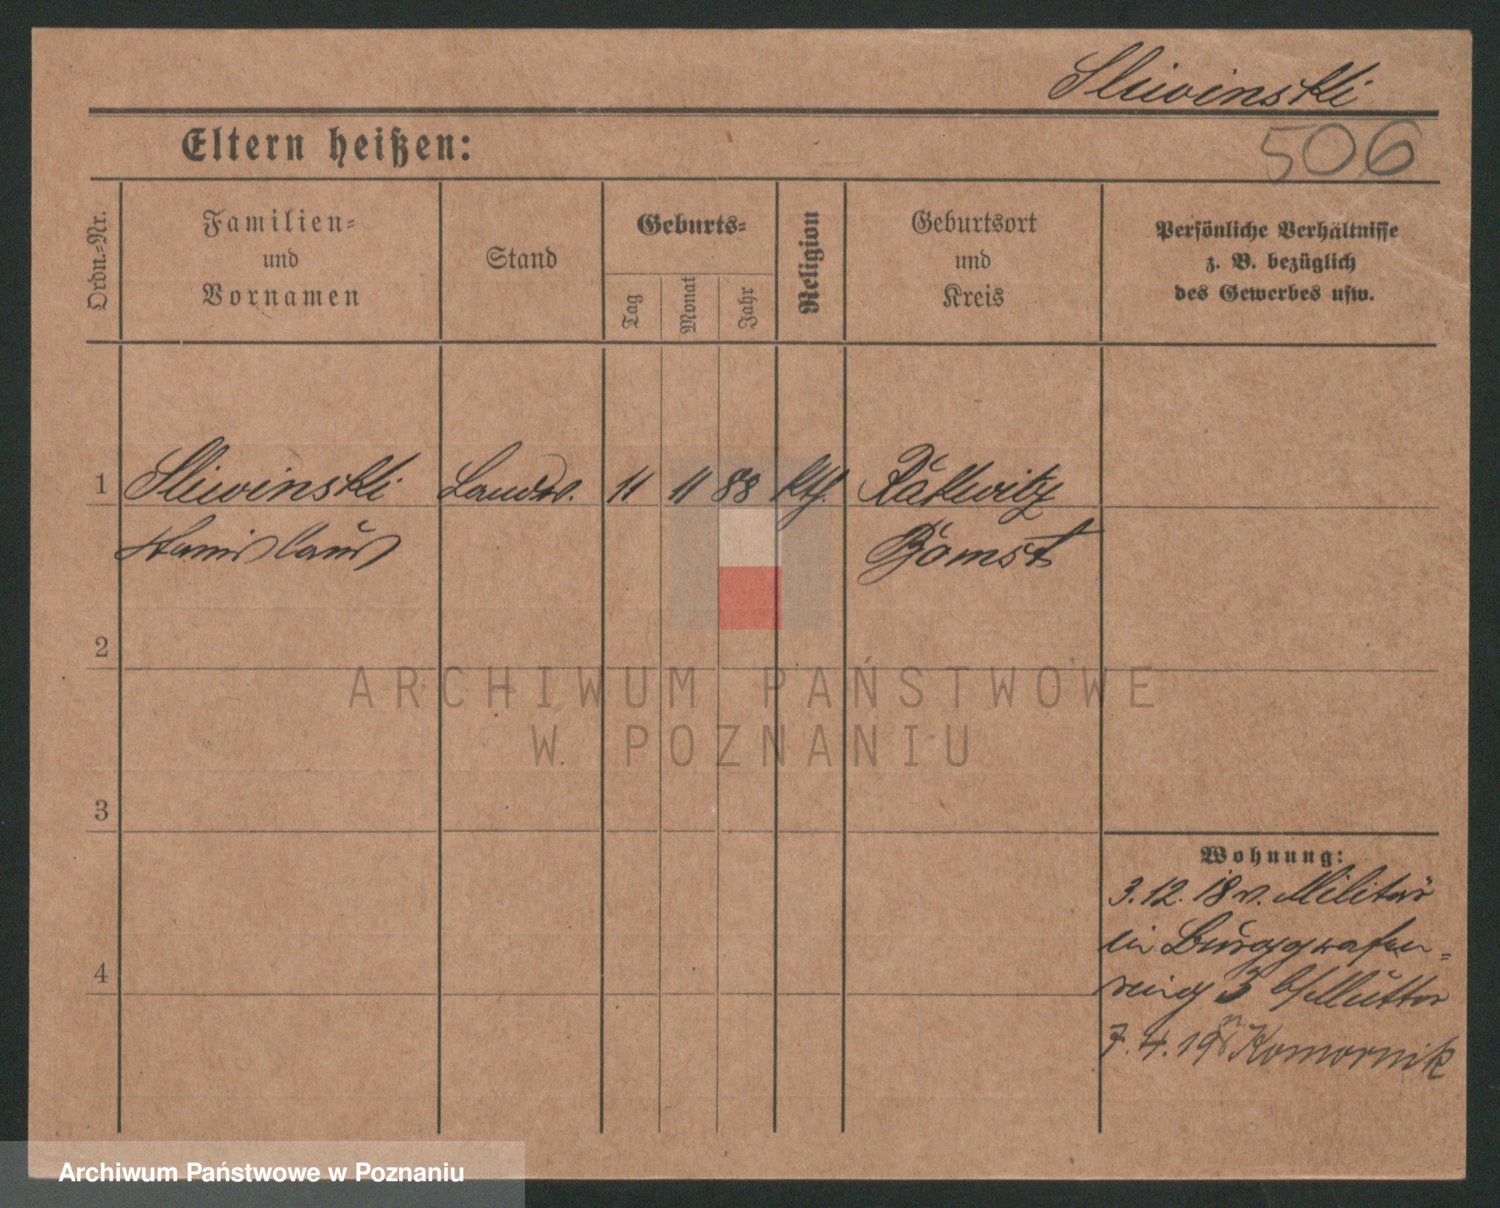 Sliwinski
Eltern heißen:
506
Ordn.-Nr.
Familien-
und
Vornamen
Stand
Geburts-
Tag
Monat
Jahr
Religion
Geburtsort
und
Kreis
Persönliche Verhältnisse
z. B. bezüglich
des Gewerbes usw.
1 Sliwinski Landw. 11 11 88 kth. Rakwitz
Stanislaus Bomst
2
ARCHIWUM PAŃSTWOWE
W POZNANIU
3
Wohnung:
3.12.18 v. Militär
in Burggrafen-
4
ring 3 b/Mutter
7.4.19 n Komornik
Archiwum Państwowe w Poznaniu